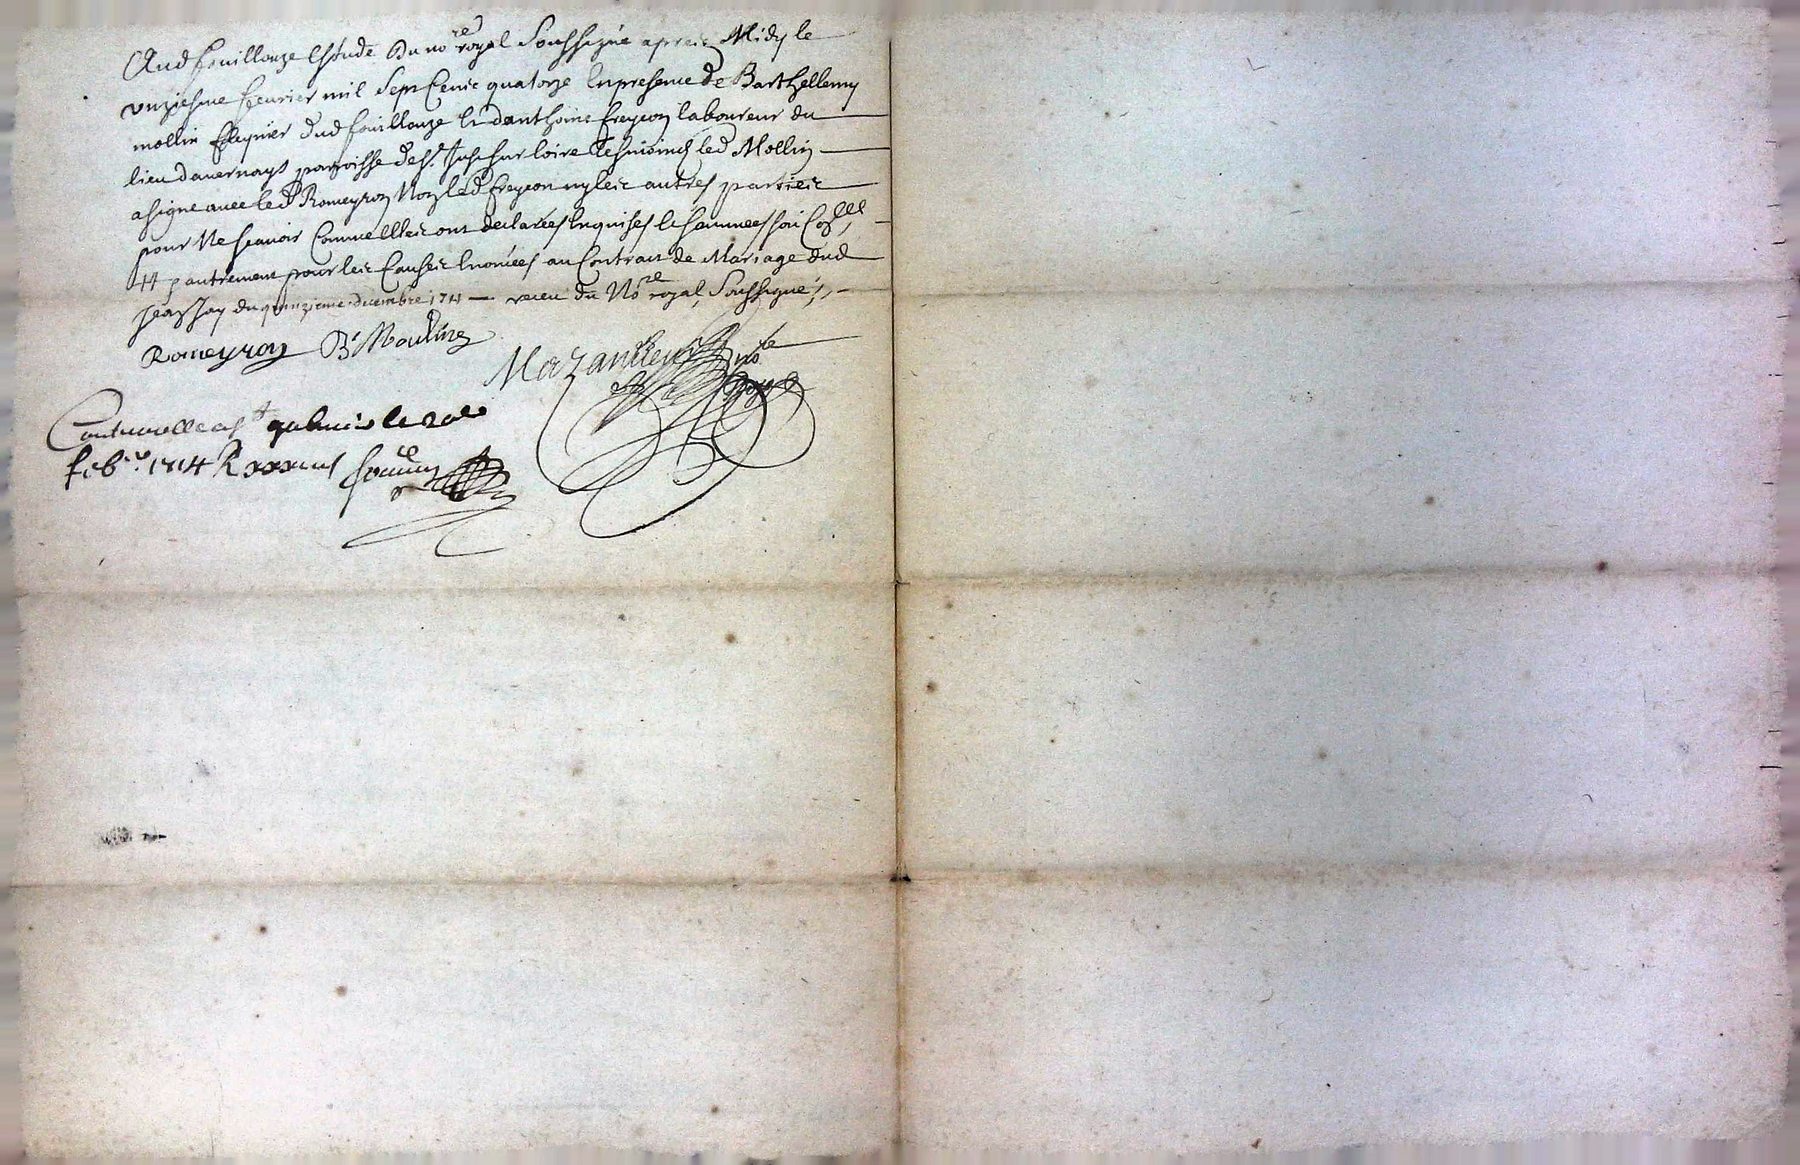 Aud fouillouze Estude du no.re royal Soussigné apres Midy le
vnziesme feurier mil Sept Centz quatorze En presence de Barthellemy
mollin dud fouillouze Et danthoine freycon laboureur du
lieu dauernays parroisse de St. Just sur loire tesmoins led Mollin
a signe auec led Romeyron Non led freycon ny les autres parties
pour Ne scauoir Comme elles ont declarées Enquises Et sommees
autrement pour les Causes Enoncées au Contrat de Mariage dud
Jean Jay du quinzieme decembre 1711 — receu du No.re royal Soussigné
Romeyron B. Moulin
Mazandieu no.re
Royal
Controlle a St galmier le 20e
feb.er 1714 R